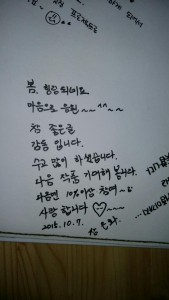 프로젝트로
봄. 힐링 되네요.
마음으로 응원~~^^~~
참 좋은글
감동 입니다.
수고 많이 하셨습니다.
다음 작품 기대해 봅니다.
다음엔 10%이상 참여~
사랑 합니다 ♡~~~
2015.10.9.